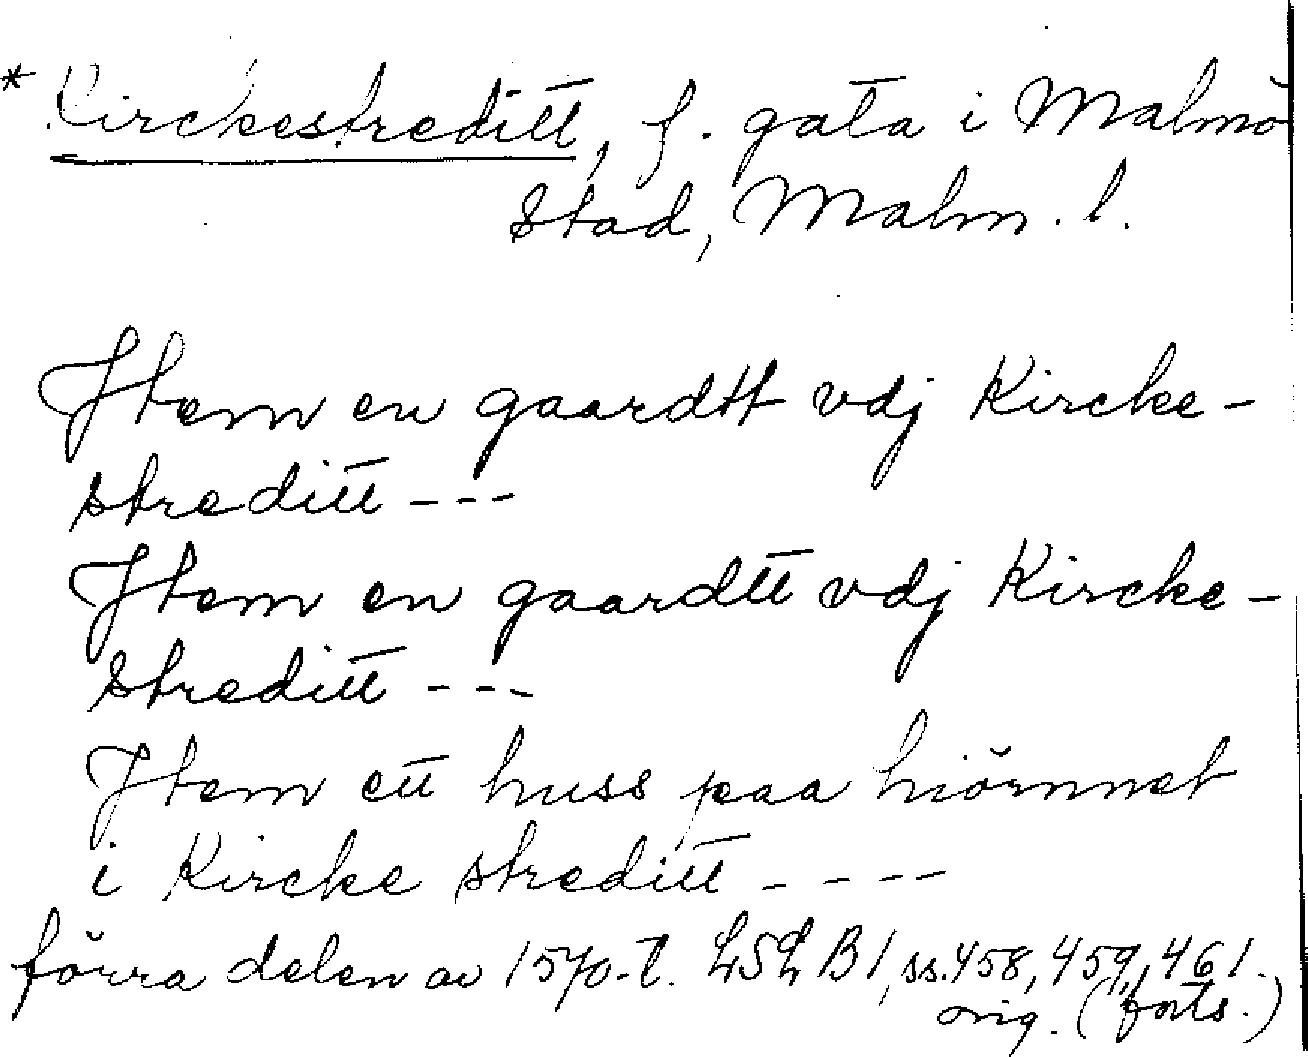 * Kirckestreditt, f. gata i Malmö
stad, Malm. l.
Jtem en gaardtt vdj Kircke-
streditt ---
Jtem en gaardtt vdj Kircke-
streditt ---
Jtem ett huss paa hiörnnet
i Kircke streditt ----
förra delen av 1570-t. LSL B1, ss. 458, 459, 461.
orig. (forts.)